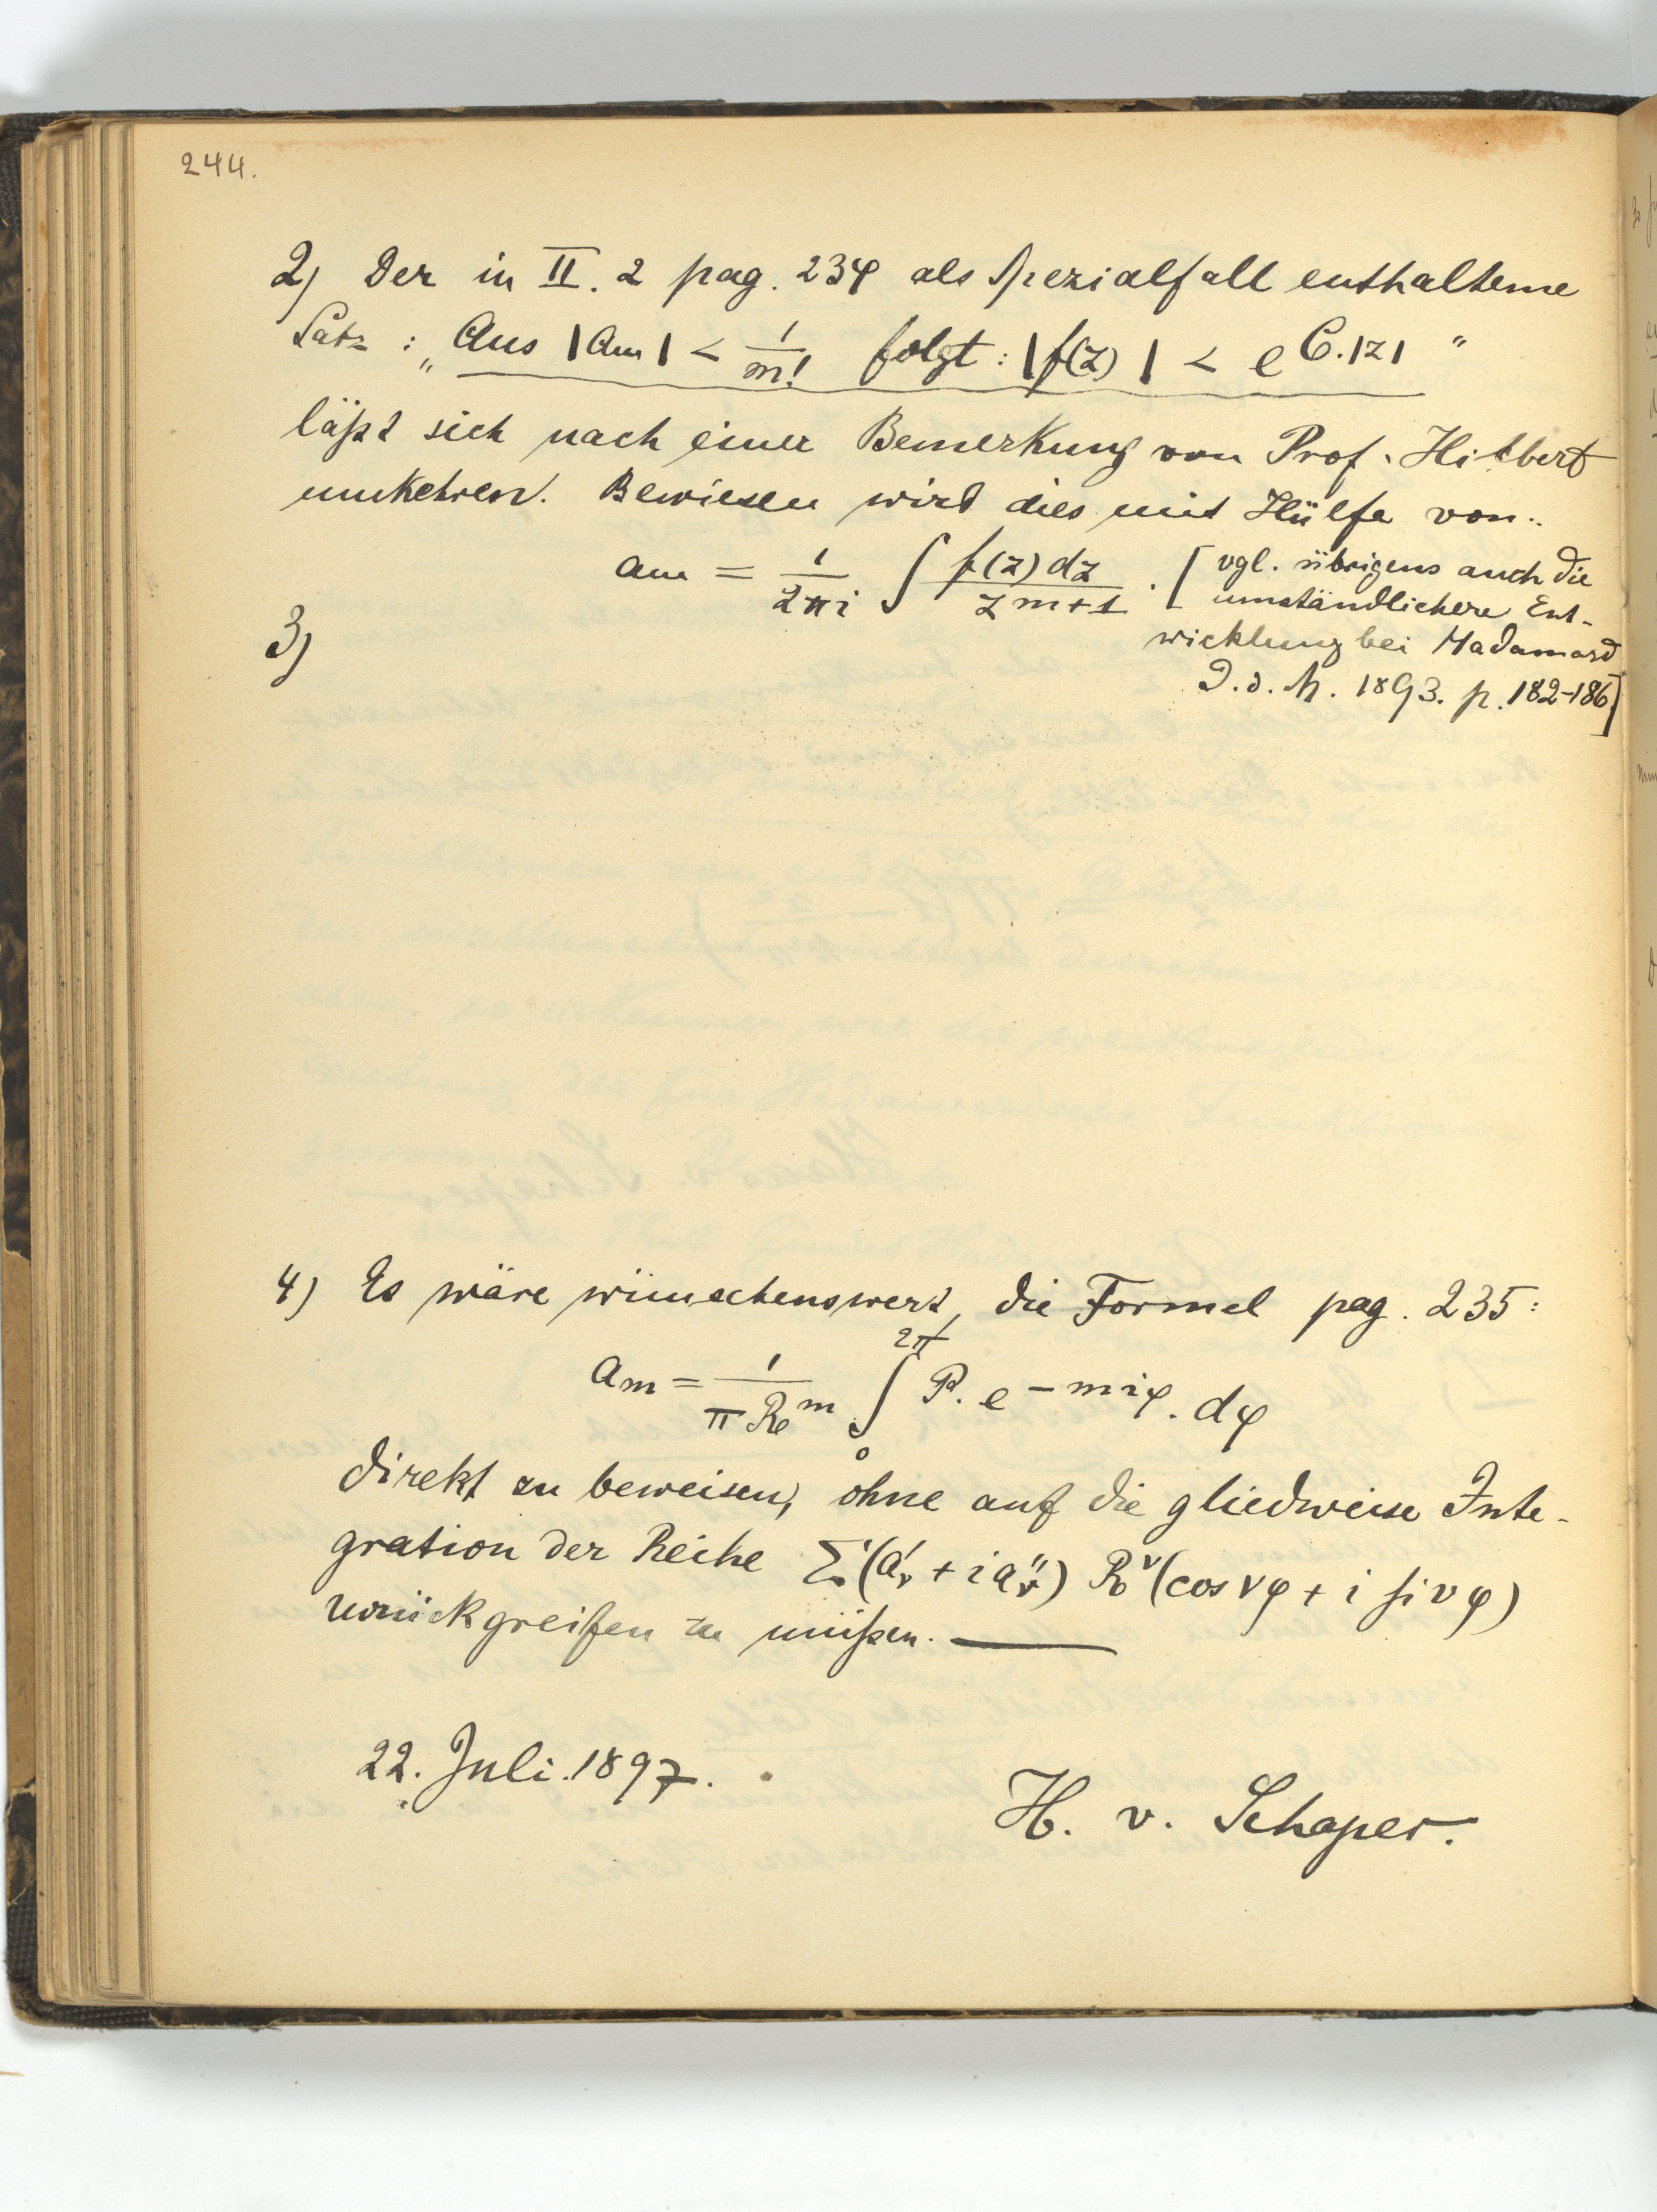 244.
2) Der in II. 2 pag. 234 als Spezialfall enthaltene
Satz : „Aus |am| < 1/m! folgt: |f(z)| < e^{C.|z|} “
läßt sich nach einer Bemerkung von Prof. Hilbert
umkehren. Bewiesen wird dies mit Hülfe von:
am = 1/(2πi) ∫ f(z)dz / z^{m+1} . [vgl. übrigens auch die
umständlichere Ent-
wicklung bei Hadamard
J. d. M. 1893. p. 182-186]
3)
4) Es wäre wünschenswert, die Formel pag. 235:
am = 1/(πR^m) ∫_0^{2π} P. e^{-miφ}. dφ
direkt zu beweisen, ohne auf die gliedweise Inte-
gration der Reihe Σ(a'_ν + i a''_ν) R^ν (cos νφ + i si νφ)
zurückgreifen zu müßen. —
22. Juli. 1897.
H. v. Schaper.